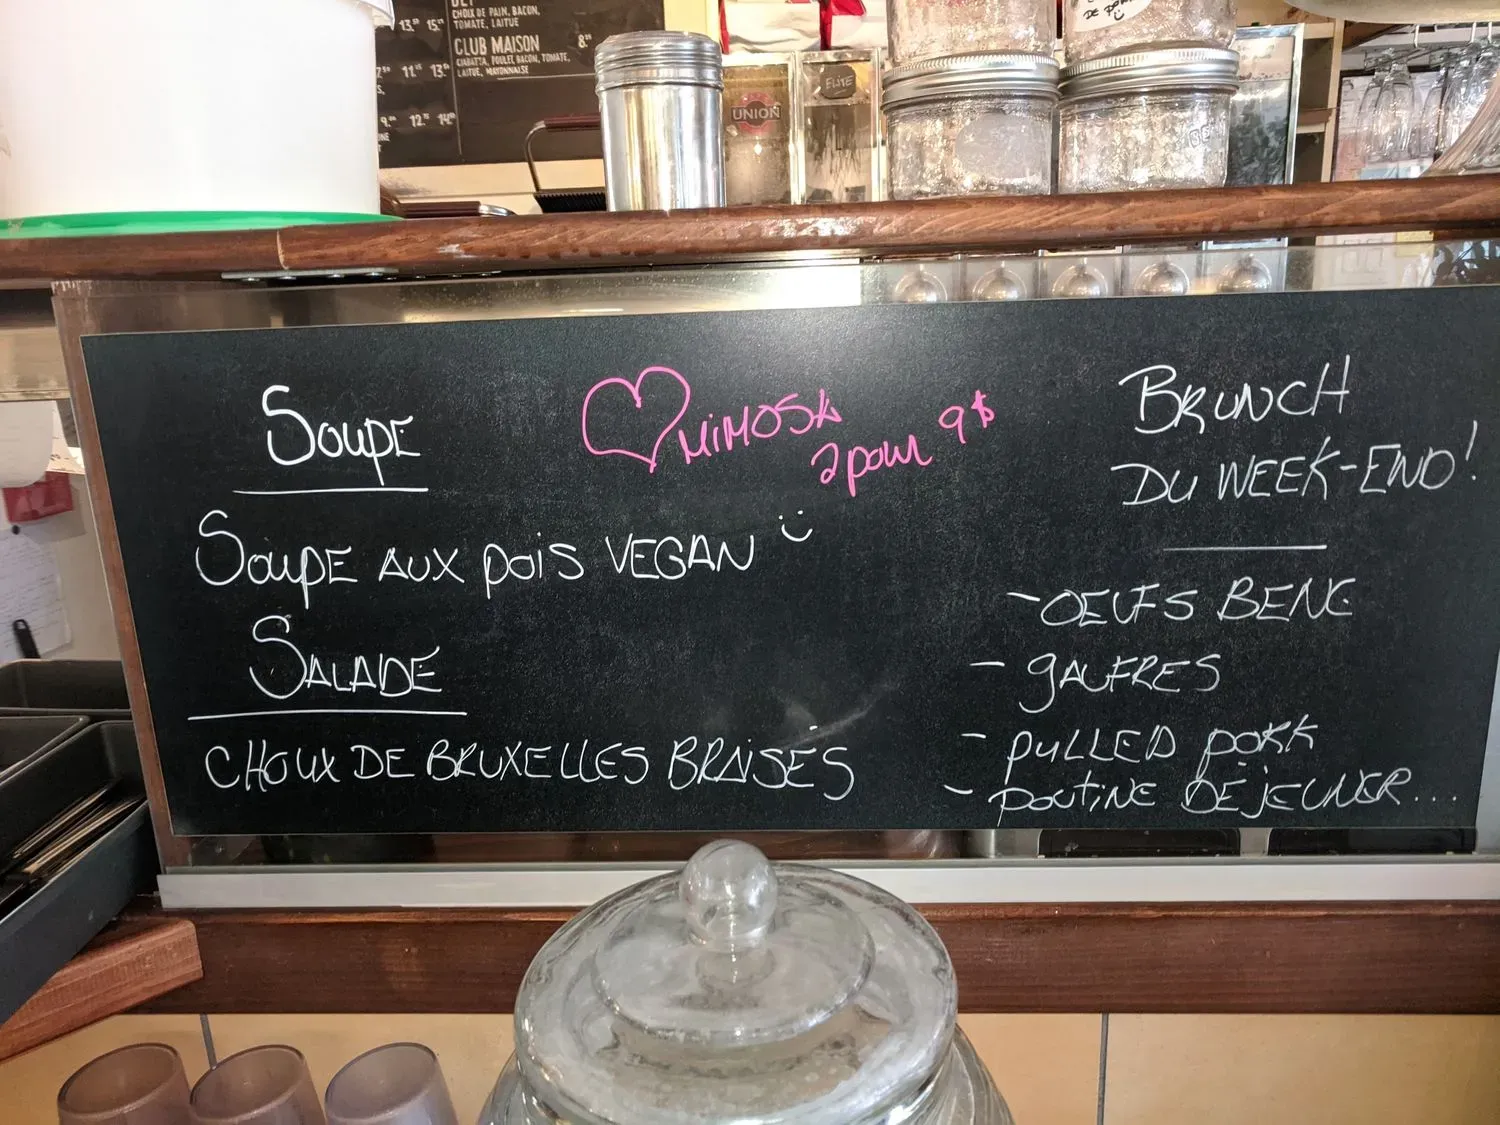 13.⁵⁰ 15.⁵⁰
CHOIX DE PAIN, BACON,
TOMATE, LAITUE
CLUB MAISON 8.⁵⁰
CIABATTA, POULET, BACON, TOMATE,
LAITUE, MAYONNAISE
11.⁷⁵ 13.⁵⁰
12.⁷⁵ 14.⁵⁰
UNION
ELITE
DE
SOUPE
MIMOSA
2 pour 9$
BRUNCH
DU WEEK-END!
SOUPE AUX pois VEGAN
SALADE
CHOUX DE BRUXELLES BRAISÉS
- OEUFS BENE
- gAUFRES
- pULLED pORK
- pOUTiNE DÉjEUNER...